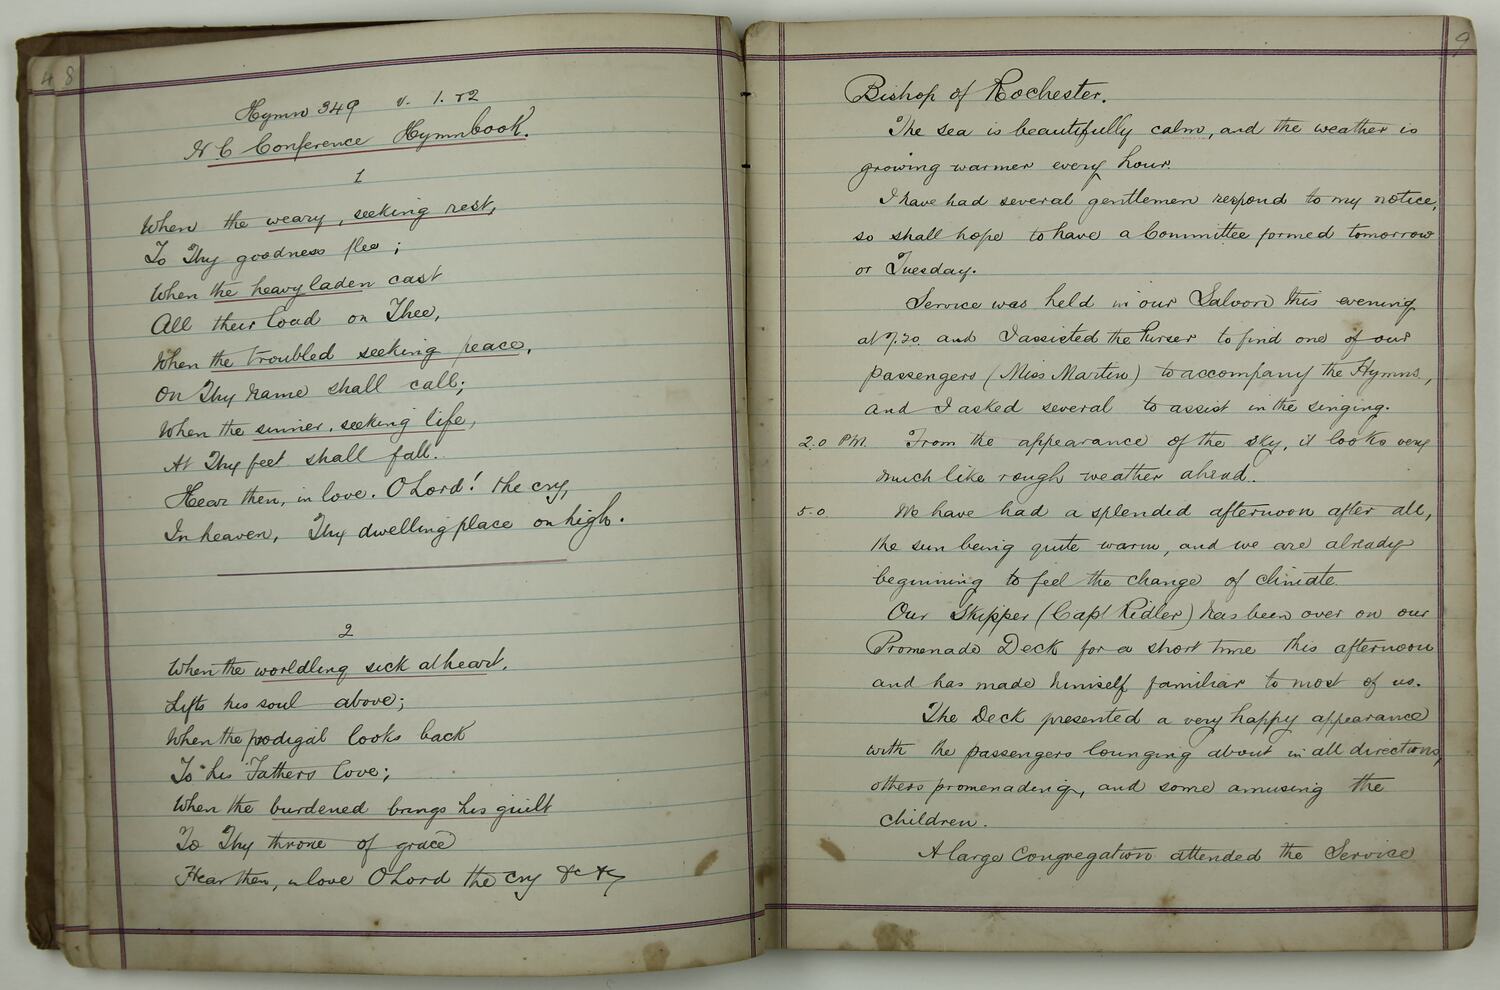 48
Hymn 349 v. 1. & 2
N C Conference Hymnbook.
1
When the weary, seeking rest,
To Thy goodness flee;
When the heavy laden cast
All their load on Thee,
When the troubled seeking peace,
On Thy Name shall call;
When the sinner, seeking life,
At Thy feet shall fall.
Hear then, in love. O Lord! the cry,
In heaven, Thy dwelling place on high.
2
When the worldling sick at heart,
Lifts his soul above;
When the prodigal looks back
To his Fathers love;
When the burdened brings his guilt
To Thy throne of grace
Hear then, in love O Lord the cry &c &c
9
Bishop of Rochester.
The sea is beautifully calm, and the weather is
growing warmer every hour.
I have had several gentlemen respond to my notice,
so shall hope to have a Committee formed tomorrow
or Tuesday.
Service was held in our Saloon this evening
at 7.20 and I assisted the Purser to find one of our
passengers (Miss Martin) to accompany the Hymns,
and I asked several to assist in the singing.
2.0 PM. From the appearance of the sky, it looks very
much like rough weather ahead.
5.0 We have had a splendid afternoon after all,
the sun being quite warm, and we are already
beginning to feel the change of climate
Our Skipper (Capt Ridler) has been over on our
Promenade Deck for a short time this afternoon
and has made himself familiar to most of us.
The Deck presented a very happy appearance
with the passengers lounging about in all directions,
others promenading, and some amusing the
children.
A large Congregation attended the Service